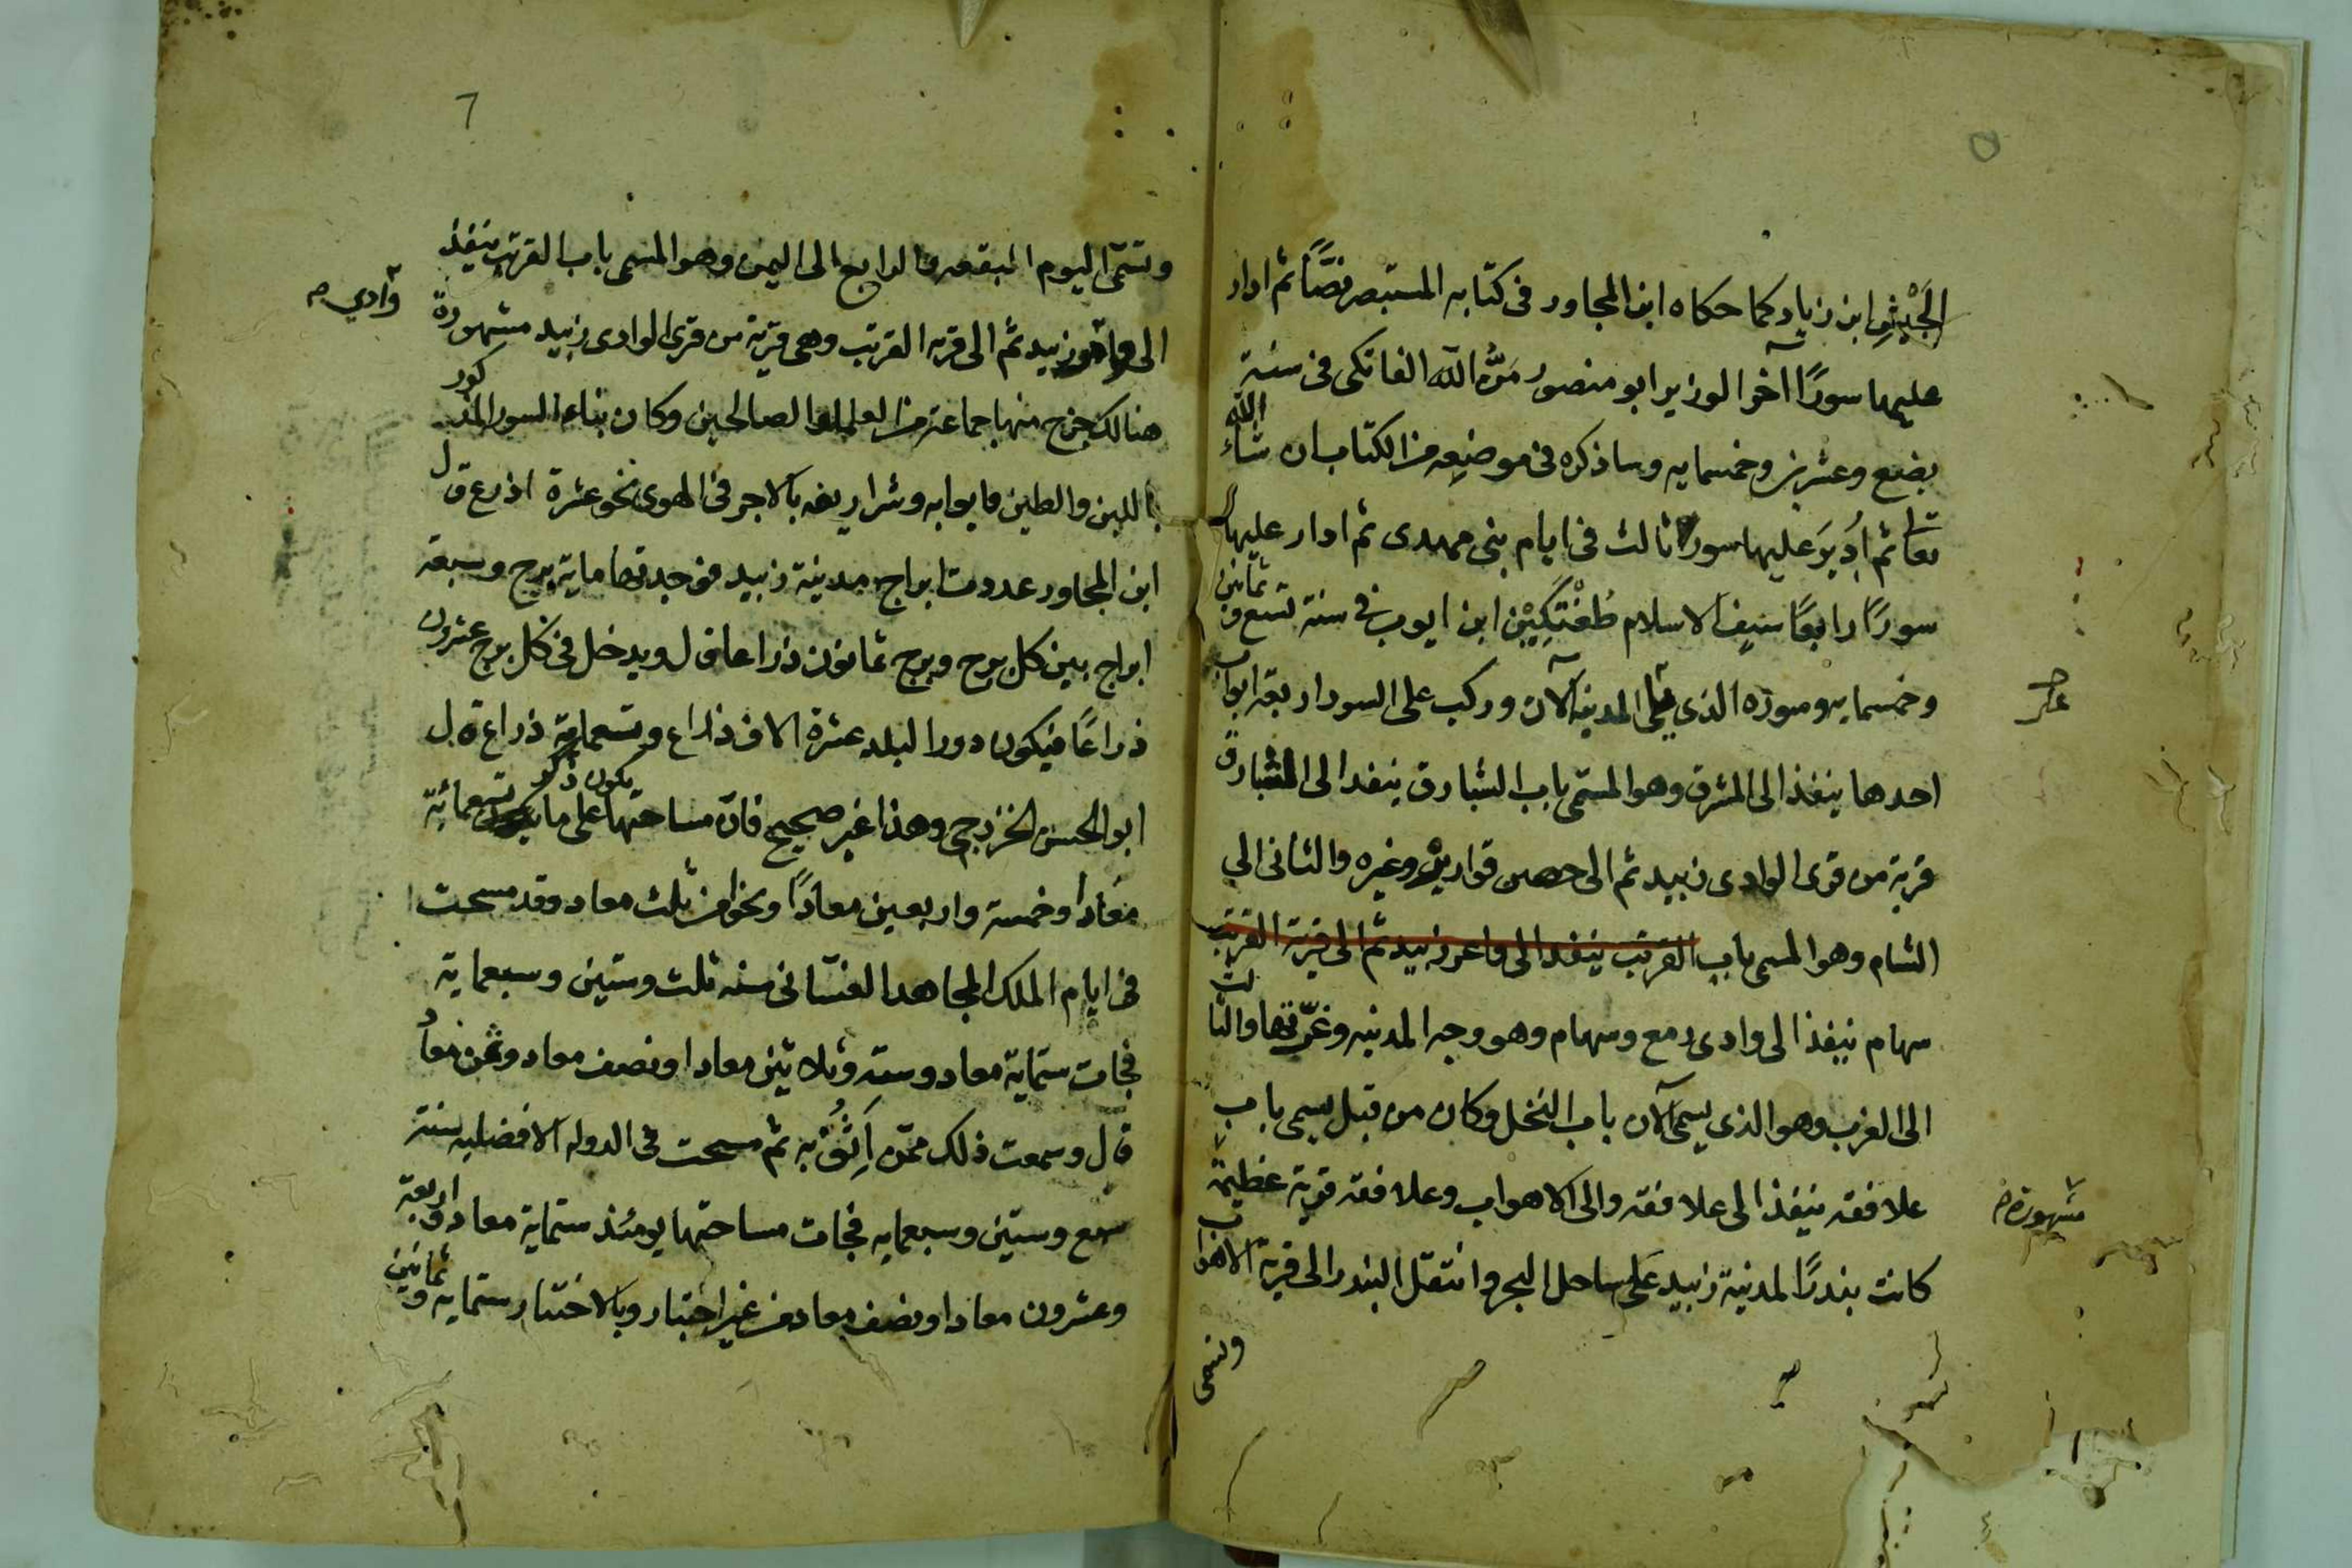 الجَيْشِ ابن زياد كما حكاه ابن المجاور فى كتابه المستبصر نصًّا ثم ادار
عليها سورًا آخر الوزير ابو منصور مَنُّ الله الفاتكى فى سنة
بضع وعشرين وخمسمايه وساذكره فى موضعه من الكتاب ان شاء الله
تعا ثم اُدِيرَ عليها سور ثالث فى ايام بنى مهدى ثم ادار عليها
سورًا رابعًا سيف الاسلام طُغْتَكِيْن ابن ايوب فى سنة تسع وثمانين
وخمسمايه وسوره الذي على المدينه الآن وركب على السور اربعه ابواب
احدها ينفذ الى المشرق وهو المسمى باب الشبارق ينفد الى الشبارق
قرية من قرى الوادى زبيد ثم الى حصن قوارير وغيره والثانى الي
الشام وهو المسمى باب القرتب ينفد الى زبيد ثم الى قرية القرتب
سهام ينفذ الى وادى رمع وسهام وهو وجه المدينه وغرّتها والثالث
الى الغرب وهو الذى يسمى الآن باب النخل وكان من قبل يسمى باب
غلافقه ينفذ الى غلافقه والى الاهواب وغلافقه قرية عظيمة
مشهورة
كانت بندرًا لمدينة زبيد عَلى ساحل البحر وانتقل البندر الى قرية الاهواب
وتسمى
7
وتسمّى اليوم البقعه والرابع الى اليمن وهو المسمى باب القرتب ينفذ
وادي
الى زبيد ثم الى قريه القرتب وهى قرية من قرى الوادى زبيد مشهورة
هنالك خرج منها جماعة من العلما والصالحين وكان بناء السور المذكور
باللبن والطين وابوابه وشراريفه بالاجر فى الهوى نحو عشرة اذرع قال
ابن المجاور عددت ابراج مدينة زبيد فوجدتها ماية برج وسبعه
ابراج بين كل برج وبرج ثمانون ذراعا قال ويدخل فى كل برج عشرون
ذراعًا فيكون دور البلد عشرة الاف ذراع وتسعماية ذراع قال
ابو الحسن الخزرجى وهذا غير صحيح فانّ مساحتها على ما يكون ذكر تسعمائة
معادا وخمسة واربعين معادًا ونحوا من ثلث معاد وقد مسحت
فى ايام الملك المجاهد الغسّانى سنه ثلث وستين وسبعماية
فجات ستماية معاد وسته وثلاثين معادا ونصف معاد وثمن معاد
قال وسمعت ذلك ممّن اَثِقُ به ثم مسحت فى الدوله الافضليه سنة
سبع وستين وسبعمايه فجات مساحتها يومئذ ستماية معاد واربعة
وعشرون معادا ونصف معاد من غير اختبار وبالاختبار ستمايه وثمانين